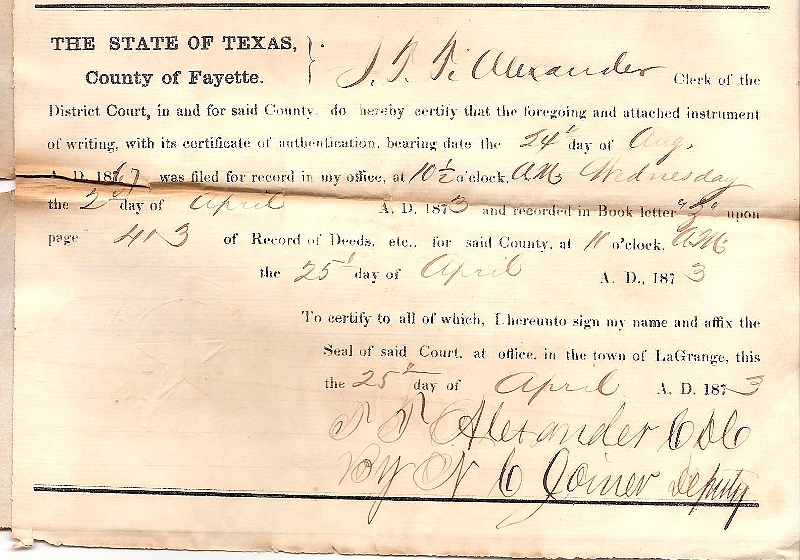 THE STATE OF TEXAS,
County of Fayette. } Alexander Clerk of the
District Court, in and for said County, do hereby certify that the foregoing and attached instrument
of writing, with its certificate of authentication, bearing date the 24' day of Aug.
A. D. 1867 was filed for record in my office, at 10½ o'clock, A.M. Wednesday
the 2 day of April A. D. 1873 and recorded in Book letter upon
page 413 of Record of Deeds, etc., for said County, at 11 o'clock. A.M.
the 25' day of April A. D., 1873
To certify to all of which, I hereunto sign my name and affix the
Seal of said Court, at office, in the town of LaGrange, this
the 25 day of April A. D. 1873
Alexander C D C
By N C Joiner Deputy